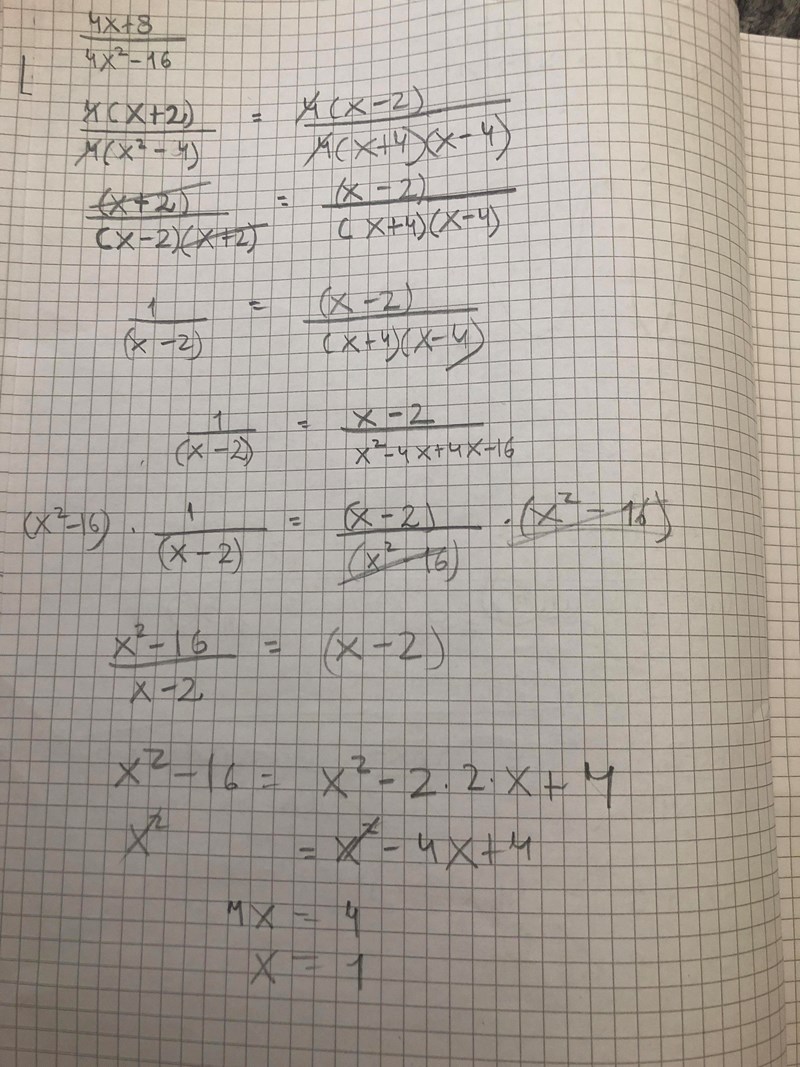 4x+8 / 4x²-16
4(x+2) / 4(x²-4) = 4(x-2) / 4(x+4)(x-4)
(x+2) / (x-2)(x+2) = (x-2) / (x+4)(x-4)
1 / (x-2) = (x-2) / (x+4)(x-4)
1 / (x-2) = x-2 / x²-4x+4x-16
(x²-16) · 1 / (x-2) = (x-2) / (x²-16) · (x²-16)
x²-16 / x-2 = (x-2)
x²-16 = x²-2·2·x+4
x² = x²-4x+4
4x = 4
x = 1